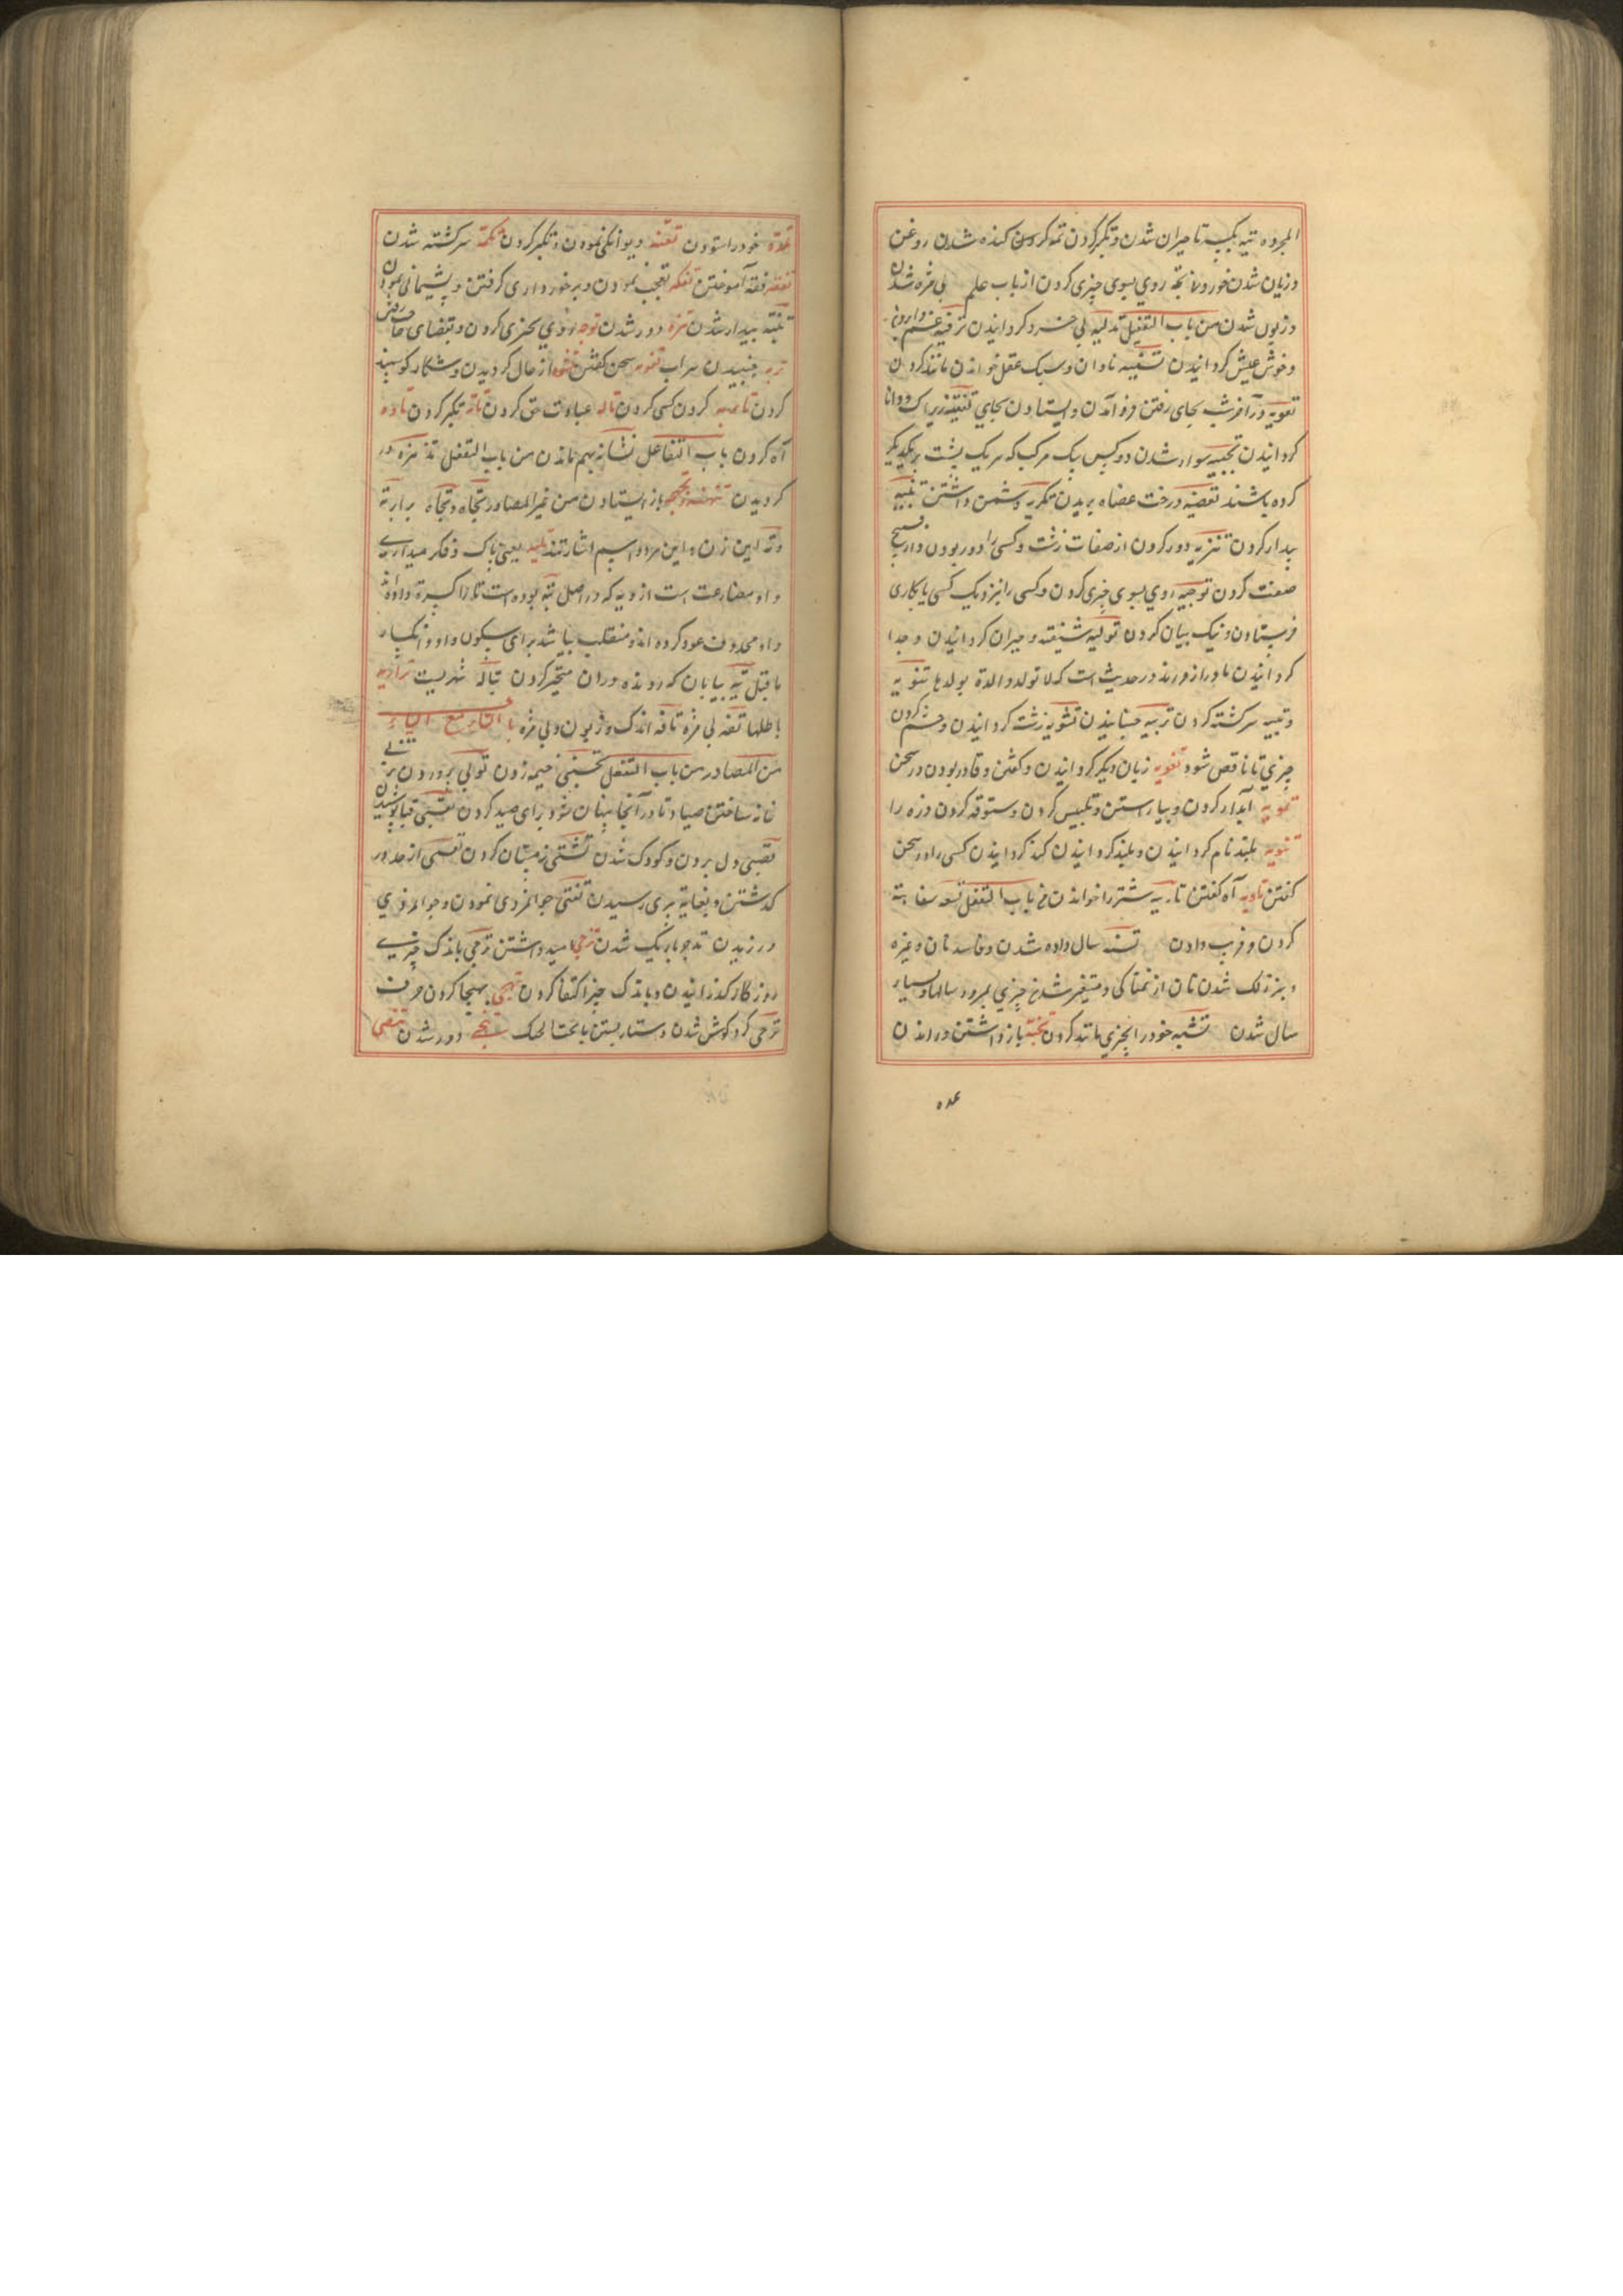 المجرده تیه بکسر تا حیران شدن و تکبر کردن تمه کردن کنده شدن روغن
و زیان شدن خوردنی تجه روي بسوی چیزی کردن از باب علم بی مزه شدن
و زبون شدن من باب التفعیل تدلیه بی خرد کردانیدن ترفیه
و خوش عیش کردانیدن تسفیه نادان و سبک عقل خواندن مانند کردن
تفویه در آخر شب بجای رفتن فرو آمدن و ایستادن بجای
کردانیدن تجبیه سوار شدن دو کس بیک مرکب که هر یک پشت بر یکدیگر
کرده باشند تعضیه درخت عضاه بریدن تکریه دشمن داشتن تنبیه
بیدار کردن تنزیه دور کردن از صفات زشت و کسی را دور بودن
صفت کردن توجیه روي بسوی چیزی کردن و کسی را نزدیک کسی یا بکاری
فرستادن و نیک بیان کردن تولیه شیفته و حیران کردانیدن و جدا
کردانیدن مادر از فرزند در حدیث است که لا تولد والدة بولدها تتویه
و تتییه سرکشته کردن تربیه جنبانیدن تشویه زشت کردانیدن و چشم کردن
چیزي تا ناقص شود تفویه زبان دیگر کردانیدن و کفتن و قادر بودن در سخن
تمویه آبدار کردن و بیاراستن و تلبیس کردن و ستوقه کردن وزه را
تنویه بلند نام کردانیدن و بلند کردانیدن کند کردانیدن کسی را در سخن
کفتن تاویه آه کفتن تاریه شتر را خواندن من باب التفعل تسفه سفاهة
کردن و فریب دادن تسنه سال داده شدن و فاسد نان و غیره
و بزرنک شدن نان از نمناکی و متغیر شدن چیزي بمرور سالها و بسیار
سال شدن تشبه خود را بچیزي مانند کردن تجبه باز داشتن و راندن
عده
تمده خود را ستودن تعته دیوانکی نمودن و تکبر کردن تکمه سرکشته شدن
تفقه فقه آموختن تفکه تعجب نمودن و برخورداری کرفتن و پشیمانی نمودن
تنبه بیدار شدن تنزه دور شدن توجه روي بچیزی کردن و بقضای حاجت رفتن
تریه جنبیدن سراب تفوه سخن کفتن تشوه از حال کردیدن و شکار کوسپند
کردن کردن کسی کردن تاله عبادت حق کردن تاته تکبر کردن تاوه
آه کردن باب التفاعل تشابه بهم ماندن من باب التفعلل تدهده در
کردیدن تنهنه و تجهجه باز ایستادن من غیر المصادر تجاه و تجاه برابر ته
و ته این زن و این مرد و اسم اشارتند یعنی باک و فکر میداری
و او مضارعت است از وبه که در اصل توبه بوده است تا را کسره داده اند
واو محذوف عود کرده اند و منقلب بیا شد برای سکون واو و انکسار
ما قبل تیه بیابان که رونده در ان متحیر کردن تباله شهریست ترادیه
باطلها تفه بی مزه تافه اندک و زبون و بی مزه باب التاء مع الیاء
من المصادر من باب التفعل تخبی خیمه زدن توالی بر وردن تزبی
خانه ساختن صیاد تا در آنجا پنهان شود برای صید کردن تقبی قبا پوشیدن
تصبی دل بردن و کودک شدن تشتی زمستان کردن تعتی از حد در
کذشتن و بغایة پیری رسیدن تفتی جوانمردی نمودن و جوانمردي
ورزیدن تدجی تاریک شدن ترجی امید داشتن تزجی باندک چیزی
روزکار کذرانیدن و باندک چیز اکتفا کردن تهجی بهجا کردن حرف
ترحی کرد کوش شدن دستار بستن با تحت الحنک تنحی دور شدن تنضی